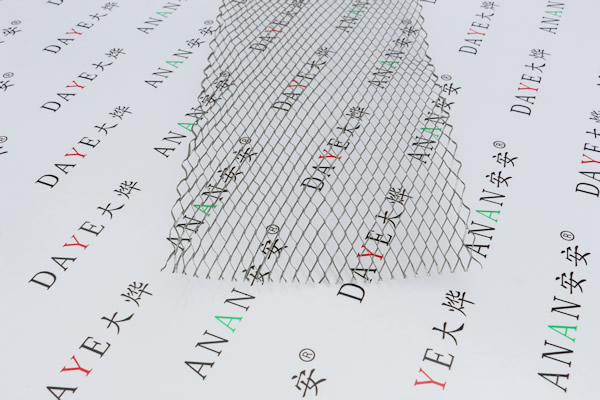 DAYE大烨
ANAN安安®
DAYE大烨
ANAN
DAYE大烨
ANAN
DAYE大烨
ANAN安安®
DAYE大烨
ANAN安安®
DAYE大烨
DAYE大烨
ANAN安安®
DAYE大烨
ANAN安安®
DAYE
DAYE大烨
ANAN安安®
DAYE大烨
ANAN安安®
AYE大烨
ANAN安安®
安®
YE大烨
ANAN安安®